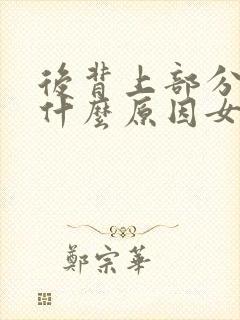 後背上部分
什麼原因女
鄭宗華